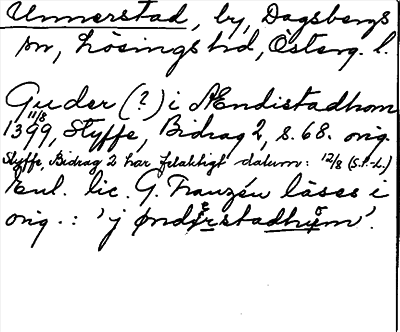 Unnerstad, by, Dagsbergs
sn, Lösings hd, Österg. l.
Guder (?) i Ændistadhom
11/8
1399, Styffe, Bidrag 2, s. 68. orig.
Styffe, Bidrag 2 har felaktigt datum: 12/8 (S.L-L.)
Enl. lic. G. Franzén läses i
orig.: 'j ønderstadhum'.